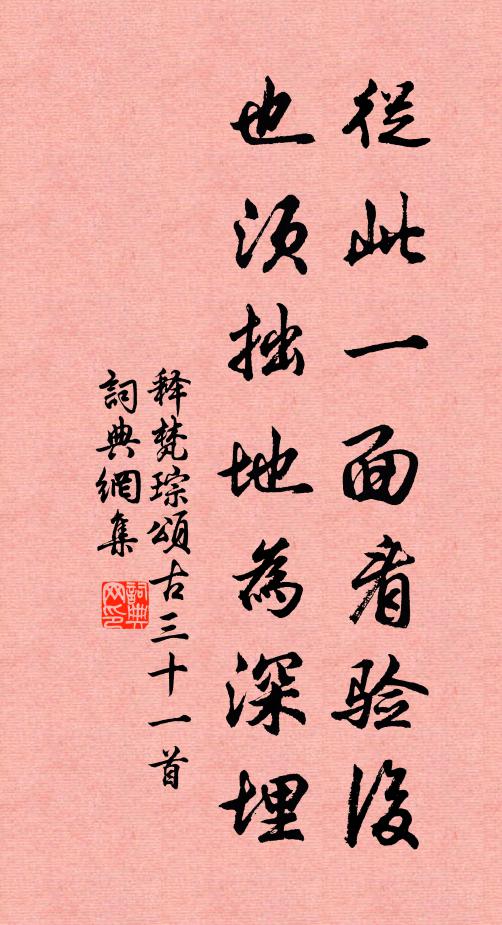 從此一面看验後
也須拙地為深埋
释梵琮頌古三十一首
詞典網集
詞典网印